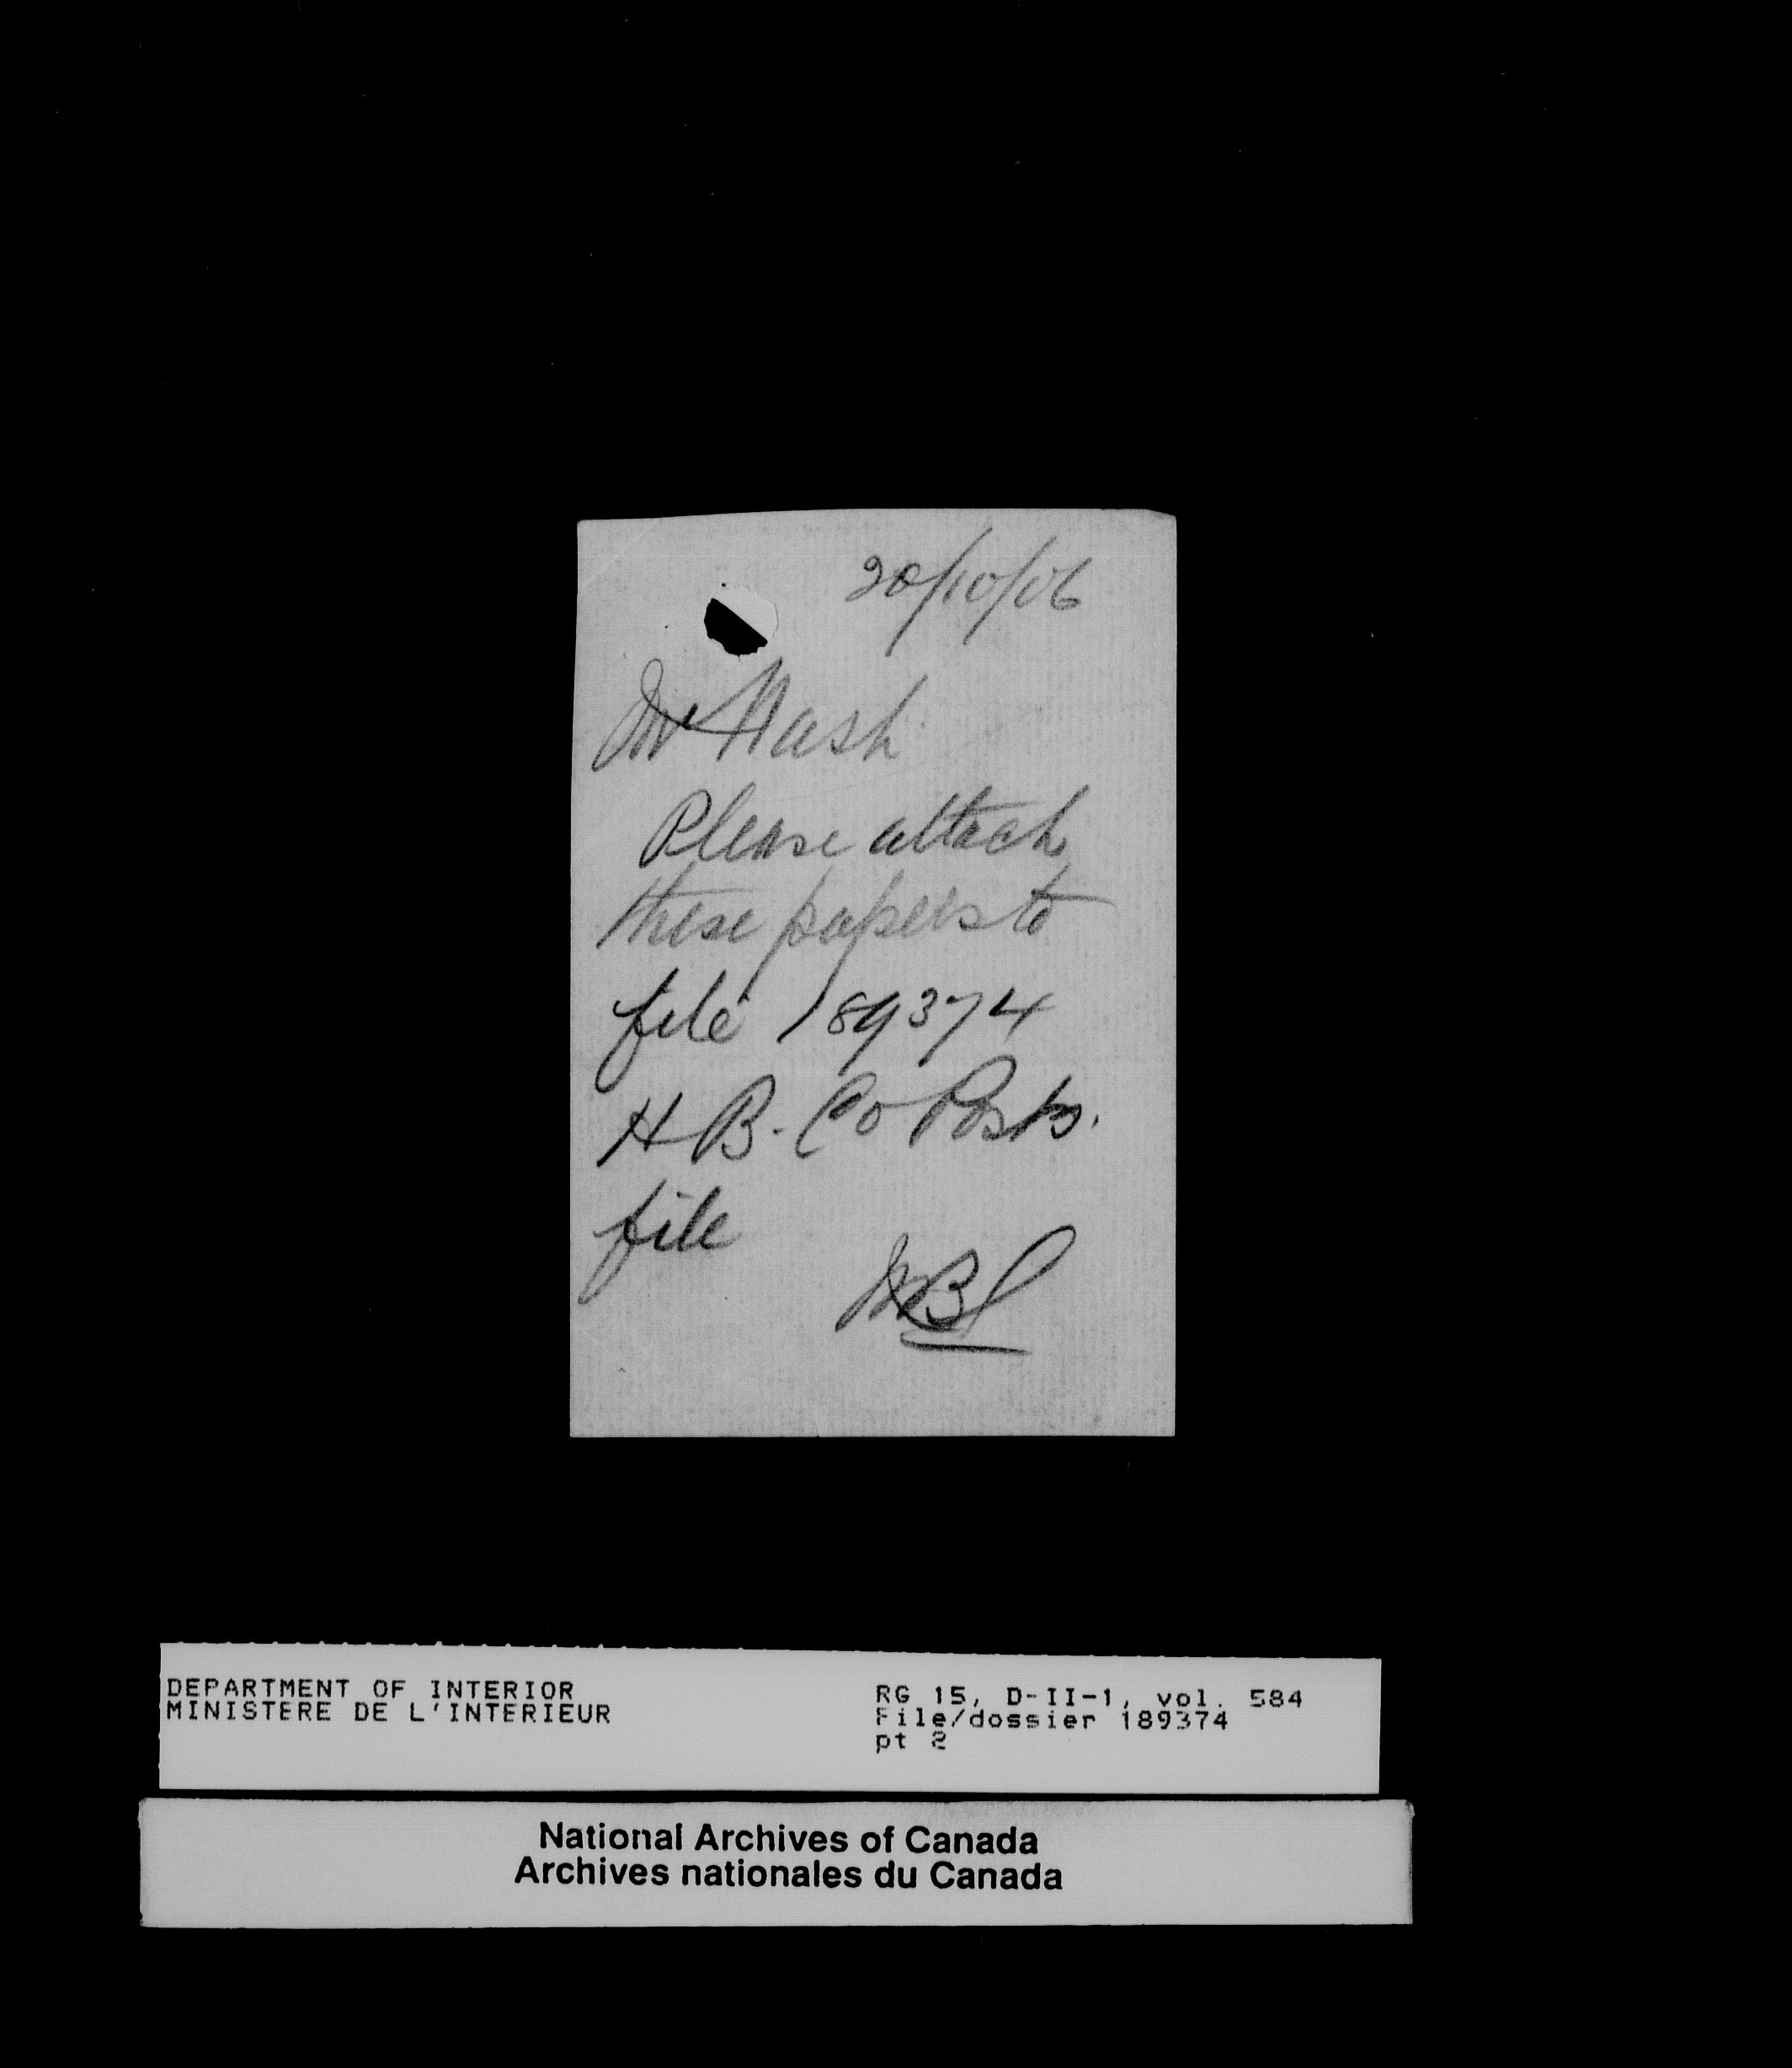 20/10/06
Mr Nash
Please attach
these papers to
file 189374
H B. Co Posts.
file
DEPARTMENT OF INTERIOR
MINISTERE DE L'INTERIEUR
RG 15, D-II-1, vol. 584
File/dossier 189374
pt 2
National Archives of Canada
Archives nationales du Canada